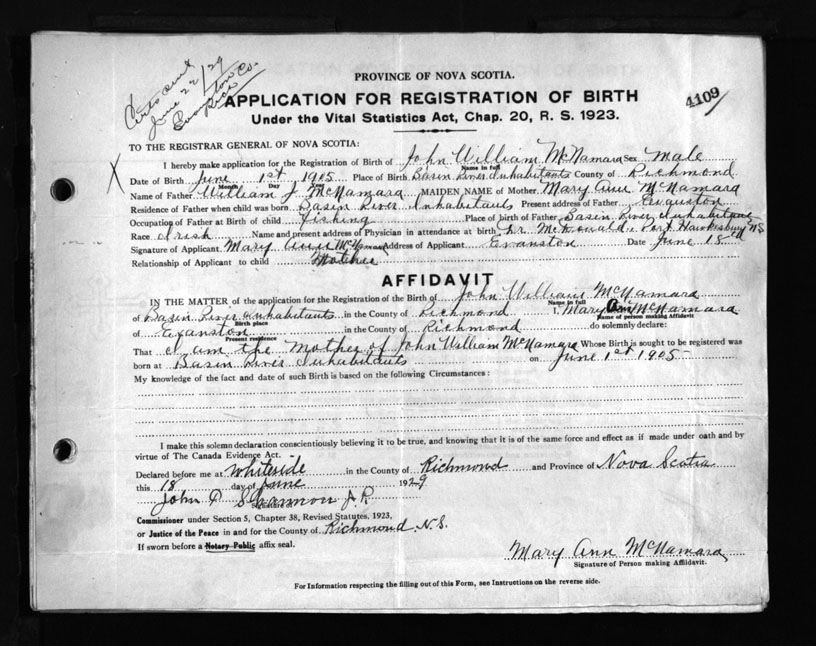 Certs sent
June 22/29
Evanston
Rich Co.
PROVINCE OF NOVA SCOTIA.
4109
APPLICATION FOR REGISTRATION OF BIRTH
Under the Vital Statistics Act, Chap. 20, R. S. 1923.
TO THE REGISTRAR GENERAL OF NOVA SCOTIA:
X
I hereby make application for the Registration of Birth of John William McNamara Sex male
Name in full
Date of Birth June 1st 1905 Place of Birth Basin River Inhabitants County of Richmond
Month Day Year
Name of Father William J. McNamara MAIDEN NAME of Mother Mary Ann McNamara
Residence of Father when child was born Basin River Inhabitants Present address of Father Evanston
Occupation of Father at Birth of child fishing Place of birth of Father Basin River Inhabitants
Race Irish Name and present address of Physician in attendance at birth Dr McDonald, Port Hawkesbury N.S
Signature of Applicant Mary Ann McNamara Address of Applicant Evanston Date June 18
Relationship of Applicant to child Mother
AFFIDAVIT
IN THE MATTER of the application for the Registration of the Birth of John William McNamara
Name in full
of Basin River Inhabitants in the County of Richmond I, Mary Ann McNamara
Birth place Name of person making Affidavit
of Evanston in the County of Richmond do solemnly declare:
Present residence
That I am the Mother of John William McNamara Whose Birth is sought to be registered was
born at Basin River Inhabitants on June 1st 1905
My knowledge of the fact and date of such Birth is based on the following Circumstances:
I make this solemn declaration conscientiously believing it to be true, and knowing that it is of the same force and effect as if made under oath and by
virtue of The Canada Evidence Act.
Declared before me at Whiteside in the County of Richmond and Province of Nova Scotia
this 18 day of June 1929
John D Shannon J.P.
Signature of
Commissioner under Section 5, Chapter 38, Revised Statutes, 1923,
or Justice of the Peace in and for the County of Richmond N.S.
If sworn before a Notary Public affix seal.
Mary Ann McNamara
Signature of Person making Affidavit.
For Information respecting the filling out of this Form, see Instructions on the reverse side.